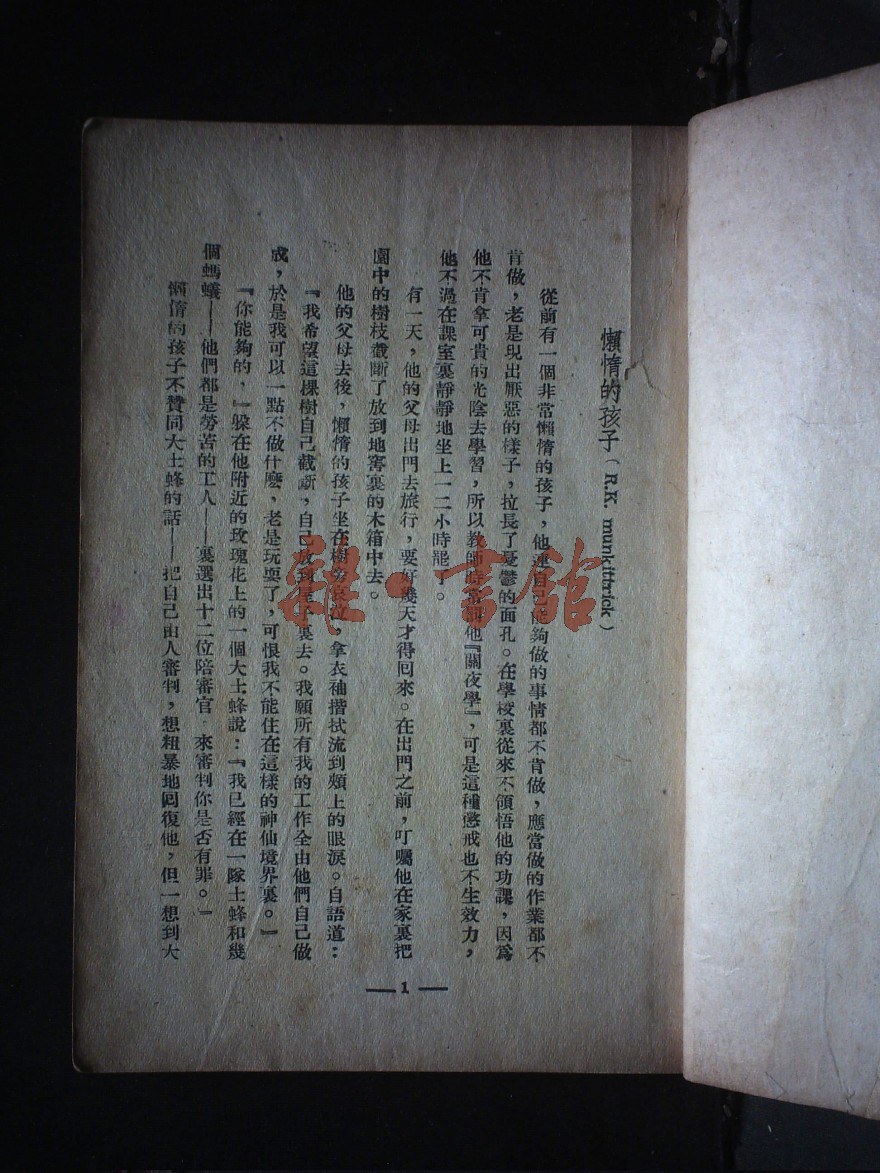 懶惰的孩子（R.K. munkittrick）
從前有一個非常懶惰的孩子，他連自己能夠做的事情都不肯做，應當做的作業都不
肯做，老是現出厭惡的樣子，拉長了憂鬱的面孔。在學校裏從來不領悟他的功課，因爲
他不肯拿可貴的光陰去學習，所以教師時常罰他『關夜學』，可是這種懲戒也不生效力，
他不過在課室裏靜靜地坐上一二小時罷了。
有一天，他的父母出門去旅行，要好幾天才得回來。在出門之前，叮囑他在家裏把
園中的樹枝截斷了放到地窖裏的木箱中去。
他的父母去後，懶惰的孩子坐在樹旁哀泣，拿衣袖揩拭流到頰上的眼淚。自語道：
『我希望這棵樹自己截斷，自己放到屋子裏去。我願所有我的工作全由他們自己做
成，於是我可以一點不做什麽，老是玩耍了，可恨我不能住在這樣的神仙境界裏。』
『你能夠的，』躲在他附近的玫瑰花上的一個大土蜂說：『我已經在一隊土蜂和幾
個螞蟻——他們都是勞苦的工人——裏選出十二位陪審官，來審判你是否有罪。』
懶惰的孩子不贊同大土蜂的話——把自己由人審判，想粗暴地回復他，但一想到大
— 1 —
雜·書館